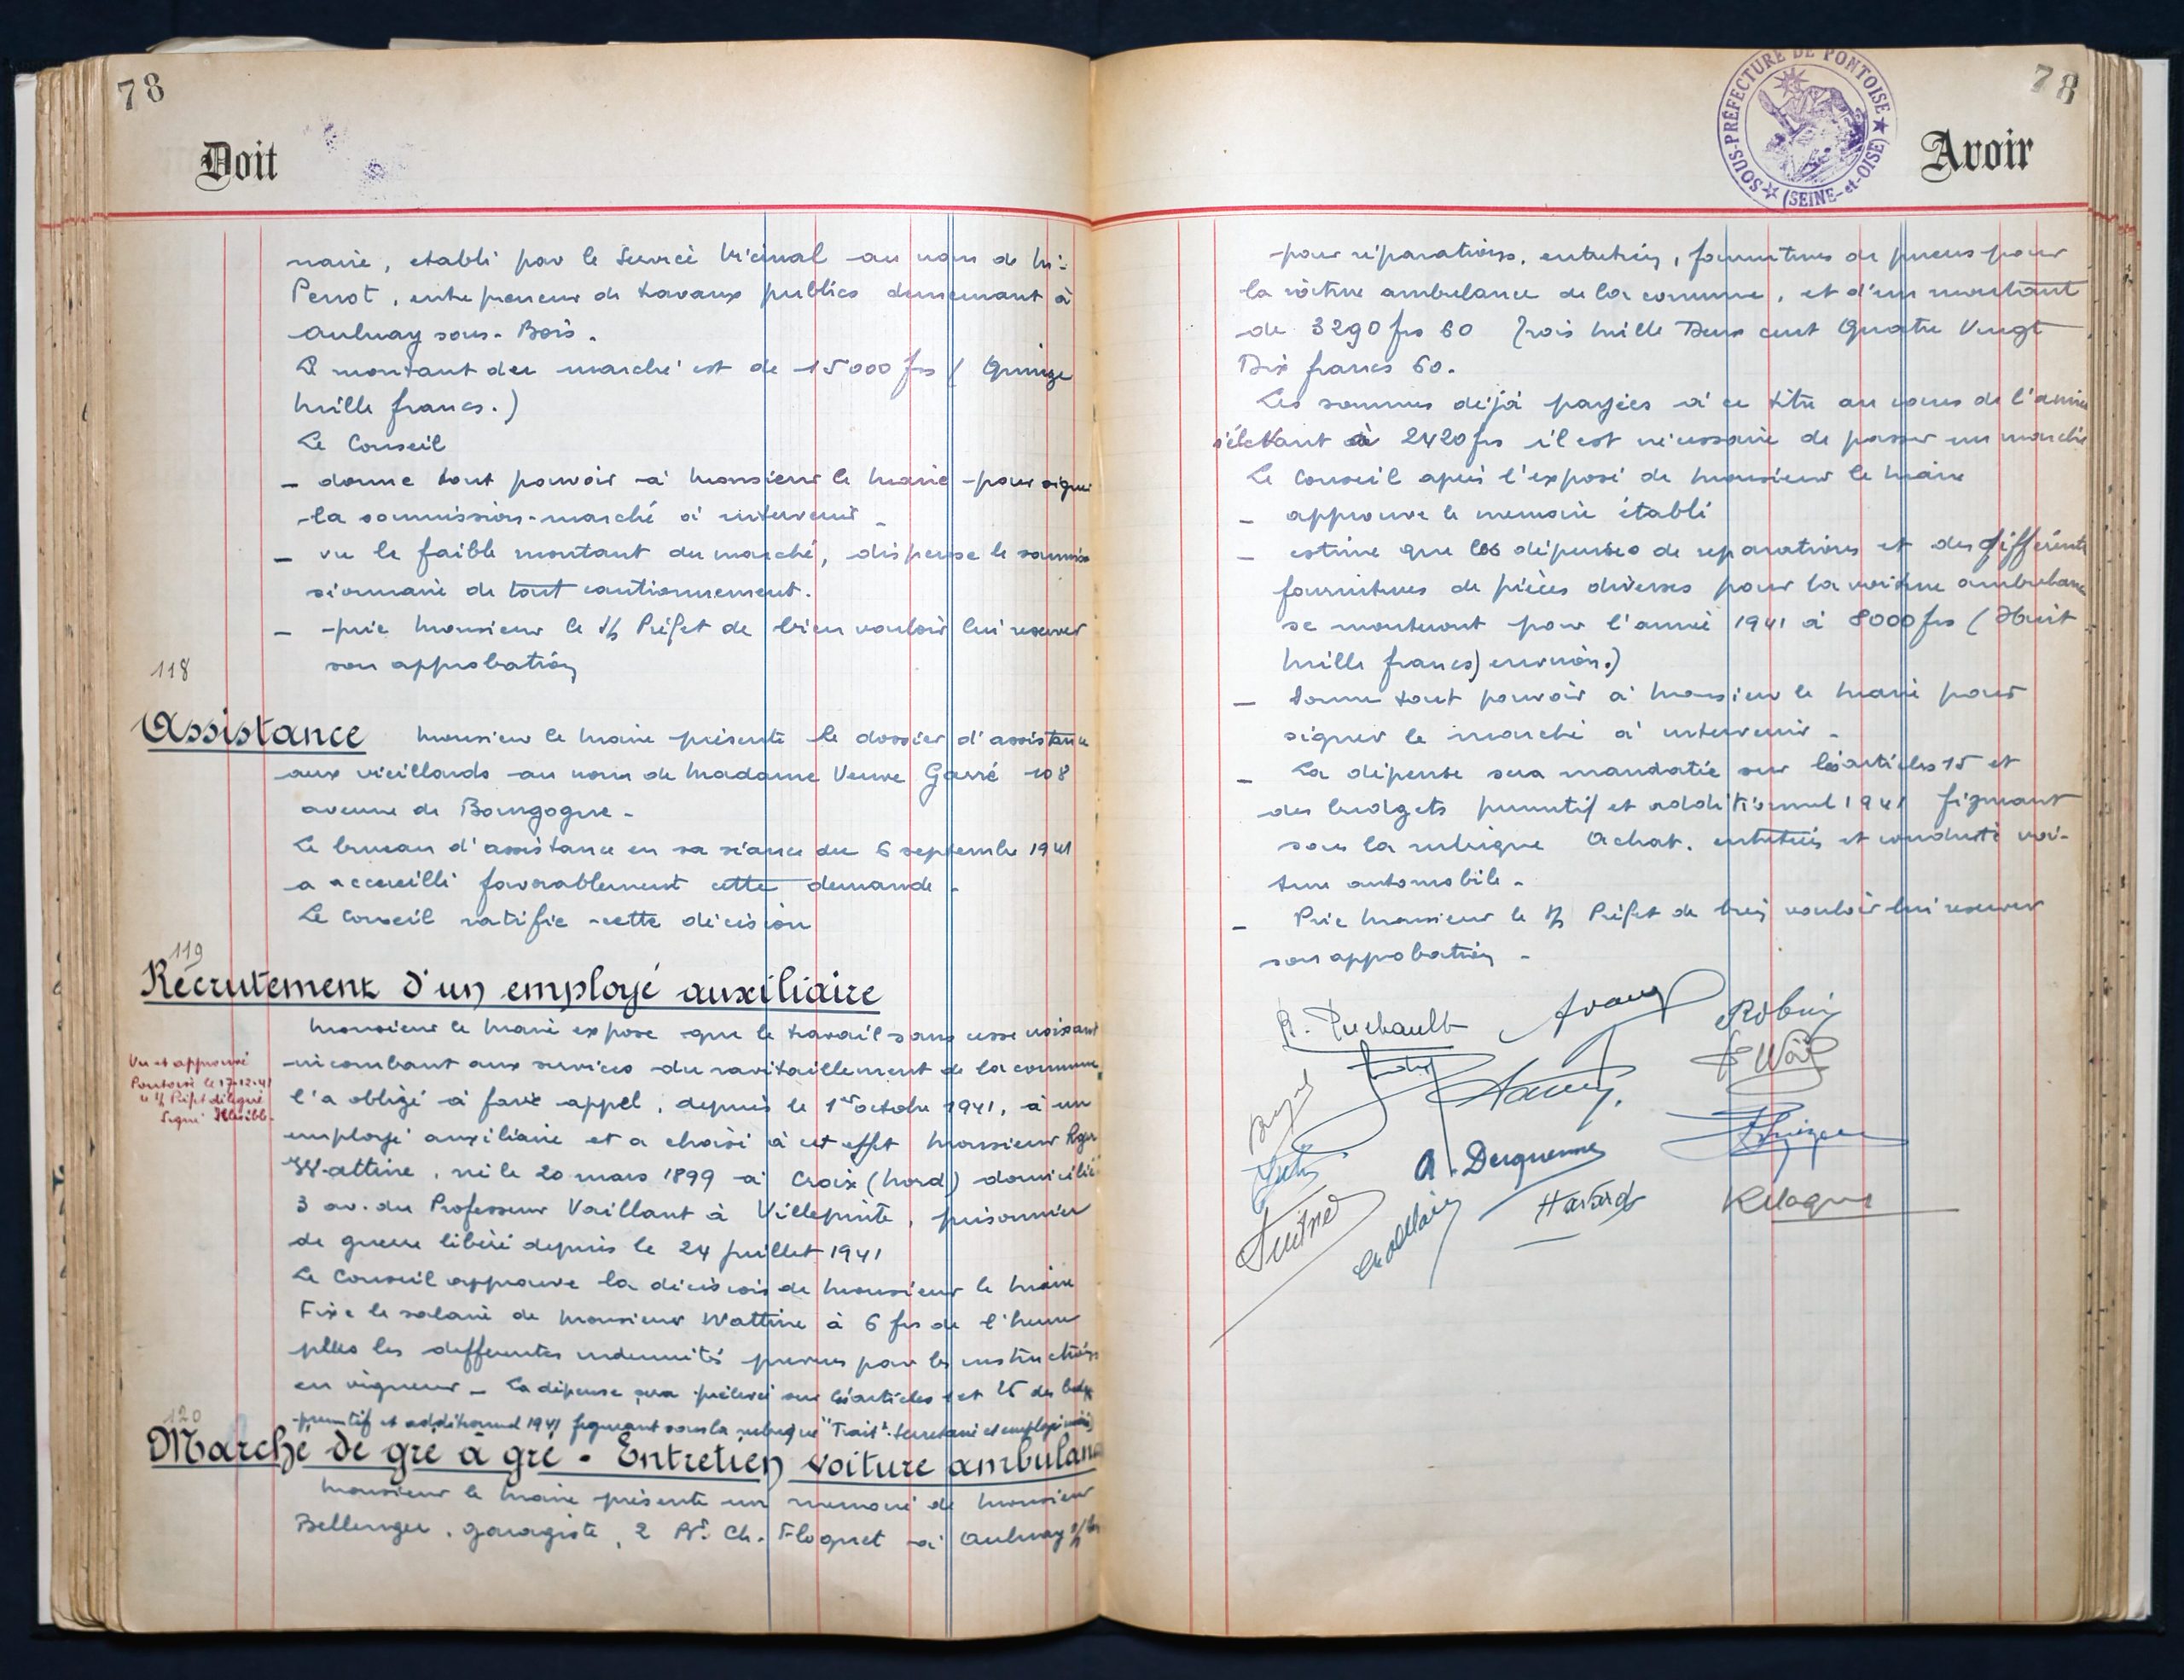 78
Doit
naire, etabli par le Service Vicinal au nom de Mr
Perrot, entrepreneur de travaux publics demeurant à
Aulnay sous-Bois.
Le montant du marché est de 15000 frs (Quinze
mille francs.)
Le Conseil
- donne tout pouvoir à Monsieur le Maire pour signer
la soumission-marché à intervenir -
- vu le faible montant du marché, dispense le soumis
sionnaire de tout cautionnement.
- prie Monsieur le S/ Préfet de bien vouloir lui reserver
son approbation
118
Assistance Monsieur le Maire présente le dossier d'assistance
aux vieillards au nom de Madame Veuve Garré 108
avenue de Bourgogne -
Le bureau d'assistance en sa séance du 6 septembre 1941
a accueilli favorablement cette demande -
Le Conseil ratifie cette décision
119
Recrutement d'un employé auxiliaire
Monsieur le Maire expose que le travail sans cesse croissant
incombant aux services du ravitaillement de la commune,
l'a obligé à faire appel, depuis le 1er octobre 1941, à un
employé auxiliaire et a choisi à cet effet Monsieur Roger
Wattine, né le 20 mars 1899 à Croix (Nord) domicilié
3 av. du Professeur Vaillant à Villepinte, prisonnier
de guerre libéré depuis le 24 juillet 1941
Le Conseil approuve la décision de Monsieur le Maire
Fixe le salaire de Monsieur Wattine à 6 frs de l'heure
plus les differentes indemnités prevues par les instructions
en vigueur - La dépense sera prélevée sur les articles 1 et 25 des
primitif et additionnel 1941 figurant sous la rubrique "Trait. Secretaire et employés
Vu et approuvé
Pontoise le 17-12-41
le S/ Préfet délégué
Signé Illisible
120
Marché de gré à gré - Entretien voiture ambulance
Monsieur le Maire présente un memoire de Monsieur
Bellenger, garagiste, 2 Bd. Ch. Floquet à Aulnay s/ Bs
78
SOUS-PRÉFECTURE DE PONTOISE
(SEINE-et-OISE)
Avoir
pour réparations, entretien, fournitures de pneus pour
la voiture ambulance de la commune, et d'un montant
de 3290 frs 60 Trois mille Deux cent Quatre Vingt
Dix francs 60.
Les sommes déjà payées à ce titre au cours de l'année
s'élevant à 2420 frs il est nécessaire de passer un marché
Le Conseil après l'exposé de Monsieur le Maire
- approuve le memoire établi
- estime que les dépenses de reparations et des différentes
fournitures de pièces diverses pour la voiture ambulance
se monteront pour l'année 1941 à 8000 frs (Huit
mille francs) environ.)
- donne tout pouvoir à Monsieur le Maire pour
signer le marché à intervenir -
- La dépense sera mandatée sur les articles 15 et
des budgets primitif et additionnel 1941 figurant
sous la rubrique Achat, entretien et conduite voi-
ture automobile -
- Prie Monsieur le S/ Préfet de bien vouloir lui reserver
son approbation -
Robin
A. Derquenne
Havard